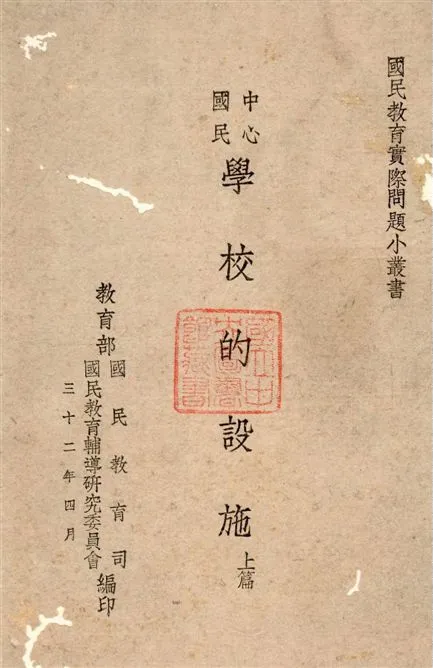 國民教育實際問題小叢書
中心
國民
學校的設施
上篇
國立中
央圖書
館藏書
教育部
國民教育司
國民教育輔導研究委員會
編印
三十二年四月